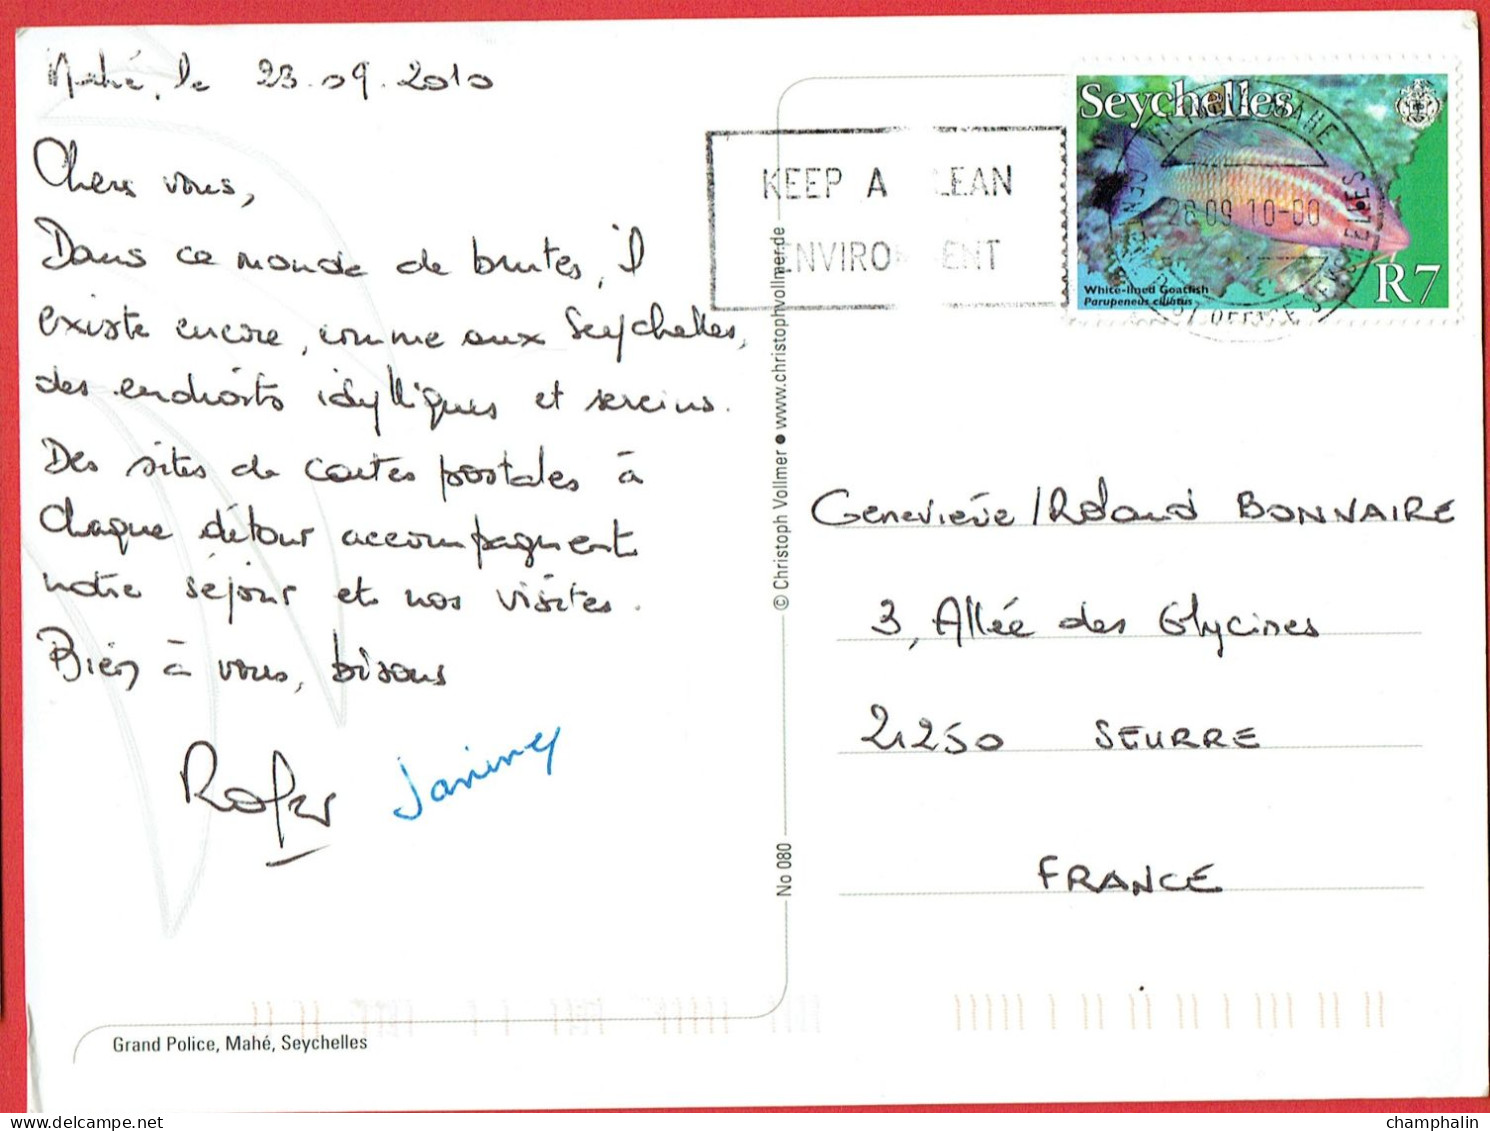 Mahé, le 23.09.2010
Chers vous,
Dans ce monde de brutes, il
existe encore, comme aux Seychelles,
des endroits idylliques et sereins.
Des sites de cartes postales à
chaque détour accompagnent
notre séjour et nos visites.
Bien à vous, bisous
Roger Janine
Grand Police, Mahé, Seychelles
© Christoph Vollmer ● www.christophvollmer.de
No 080
KEEP A LEAN
ENVIRO ENT
Seychelles
MAHE
28 09 10-00
White-lined Goatfish
Parupeneus ciliatus
R7
Geneviève/Roland BONNAIRE
3, Allée des Glycines
21250 SEURRE
FRANCE
champhalin